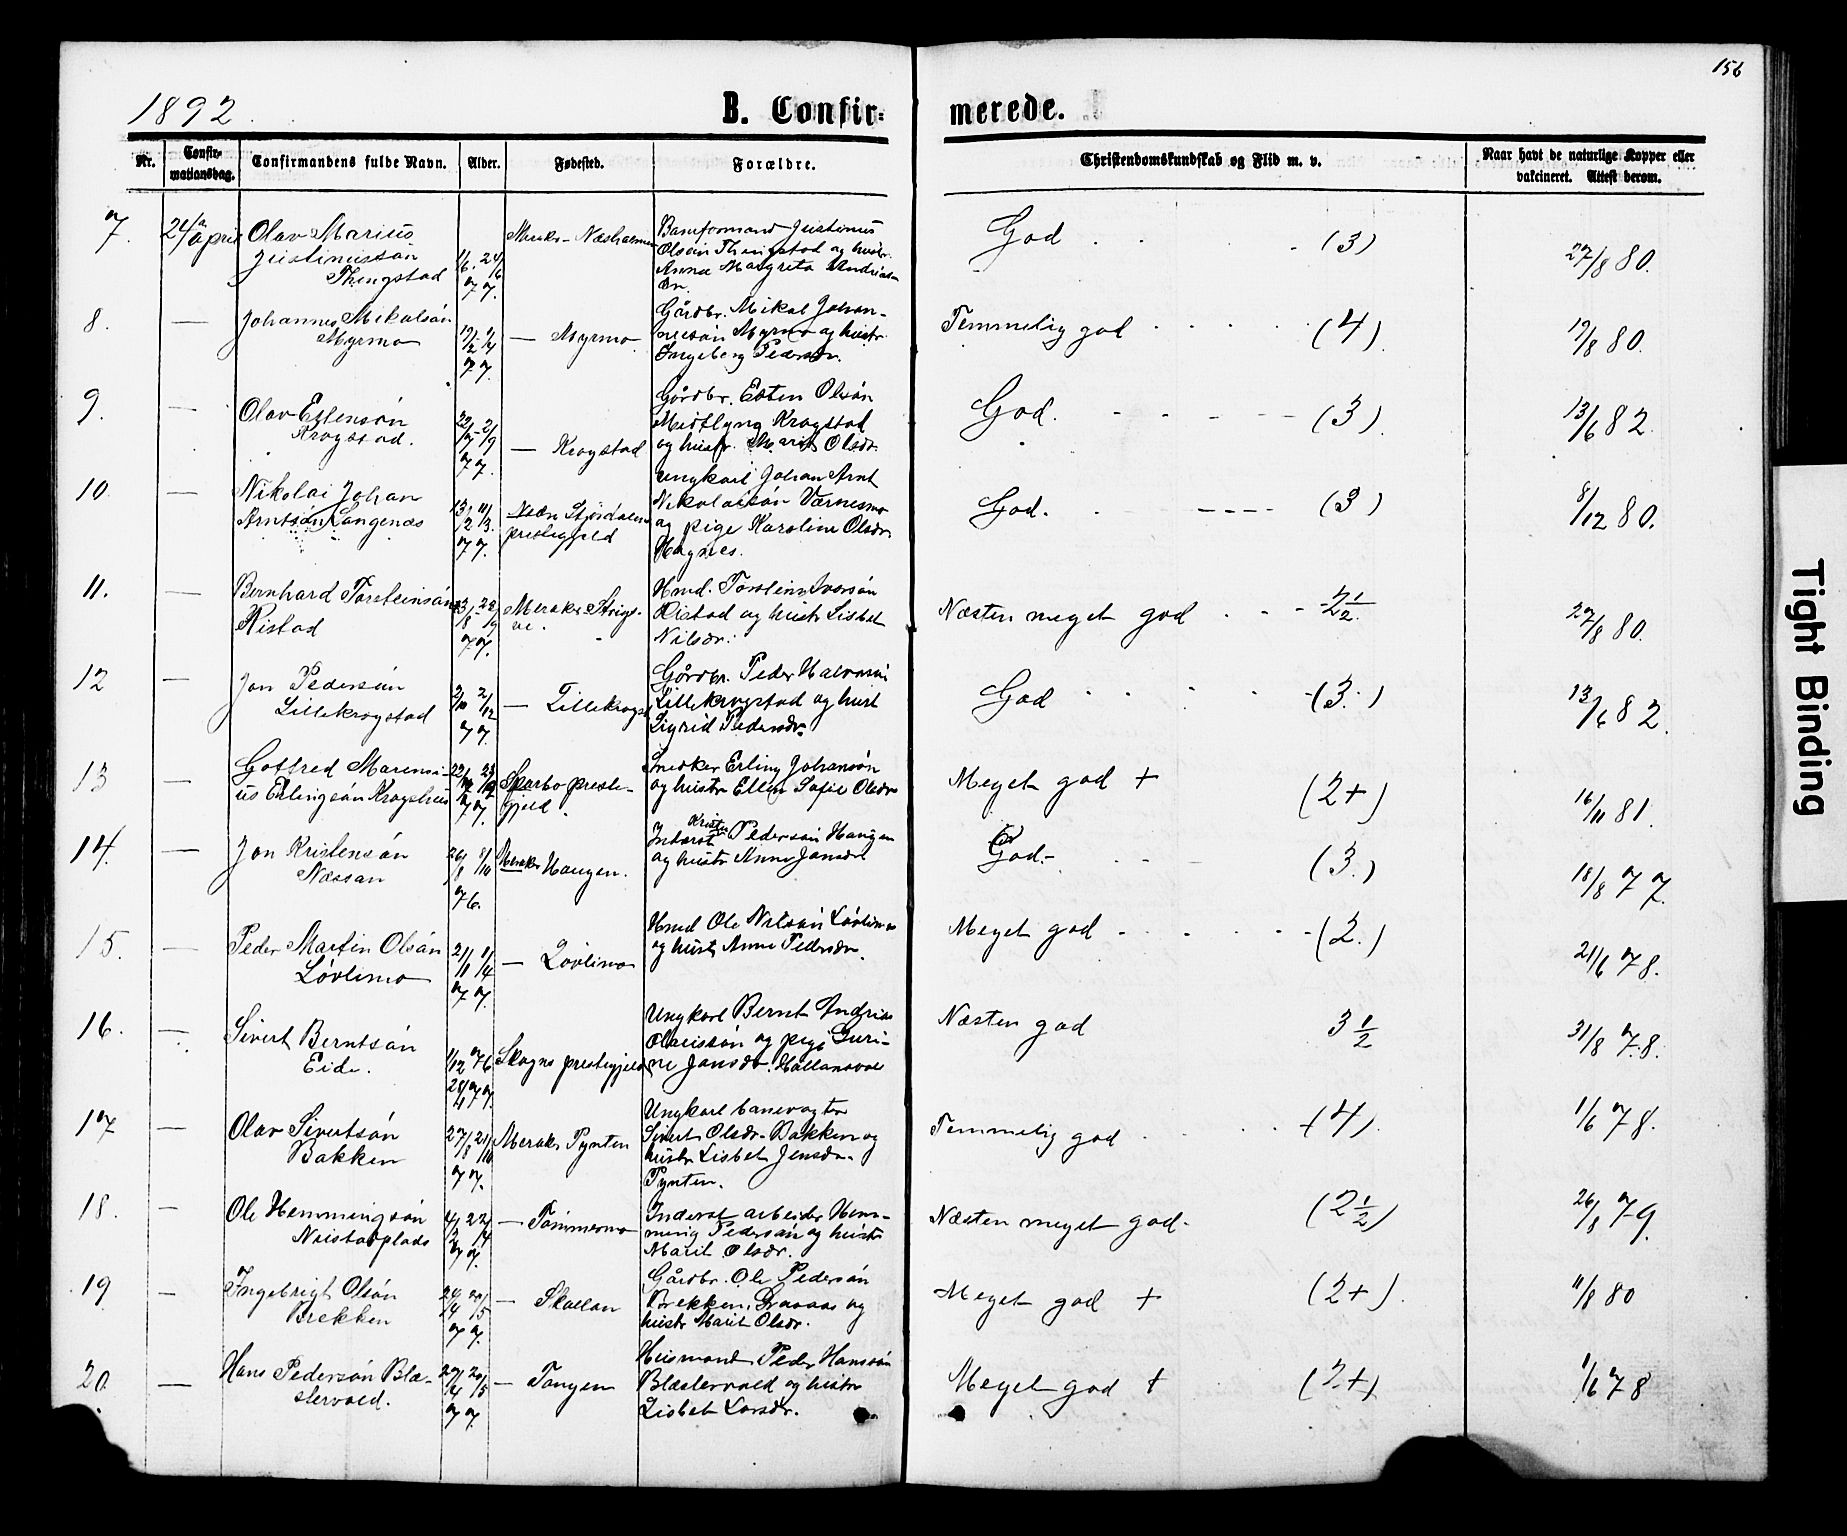 156
1892.
B. Confir- merede.
Nr.
Confir-
mationsdag.
Confirmandens fulde Navn.
Alder.
Fødested.
Forældre.
Christendomskundskab og Flid m. v.
Naar havt de naturlige Kopper eller
vakcineret. Attest derom.
7. 24/april Olav Marius
Justinussøn
Thingstad
77.
Justinus
Olsøn Thingstad og hustr.
Anna Margreta
God (3) 27/8 80.
8. — Johannes Mikalsøn
Myrmo
77.
— Myrmo
Gårdbr. Mikal Johan-
nessøn Myrmo og hustr
Ingeborg Pedersdr.
Temmelig god (4) 19/8 80.
9. — Olav Estensøn
Krogstad.
77.
— Krogstad
Gårdbr. Esten Olsøn
Midtlyng Krogstad
og hustr. Marit Olsdr.
God. (3) 13/6 82.
10. — Nikolai Johan
Arntsøn Langenæs
77.
Nedre Stjørdalens
prestegjeld
Ungkarl Johan Arnt
Nikolaisøn Værnesmo
og pige Karoline Olsdr.
God. (3) 8/12 80.
11. — Bernhard Torsteinsøn
Ristad
77.
Meraker
Hmd. Torstein Iversøn
Ristad og hustr Lisbet
Nilsdr.
Næsten meget god 2 1/2 27/8 80.
12 — Jon Pedersøn
Lillekrogstad
2/10 2/12
77.
— Lillekrogst
Gårdbr. Peder Halvorsøn
Lillekrogstad og hust
Sigrid Pedersdr.
God (3.) 13/6 82.
13 — Gotfred Marensi-
us Erlingsøn
77.
Sparbo preste-
gjeld.
Snedker Erling Johansøn
og hustr Ellen Sofie Olsdr
Meget god + (2+) 16/11 81.
14. — Jon Kristensøn
Næssan
26/8 8/10
76.
Meraker Haugen.
Inderst Kristen Pedersøn Haugen
og hustr Anne Jonsdr
God. (3.) 18/8 77.
15. — Peder Martin Olsøn
Løvlimo
21/11 1/4
77.
— Løvlimo
Hmd Ole Nilsøn Løvlimo
og hustr Anne Pedersdr.
Meget god (2.) 21/6 78.
16. — Sivert Berntsøn
Eide.
1/12 76
24/4 77.
Skogns prestegjeld
Ungkarl Bernt Andrias
og pige Guri-
ne Jonsdr.
Næsten god 3 1/2 31/8 78.
17 — Olav Sivertsøn
Bakken
27/8 21/10
77.
Meraker Pynten
Ungkarl banevogter
Sivert Olsdr. Bakken og
hustr Lisbet Jensdr.
Pynten.
Temmelig god (4) 1/6 78.
18. — Ole Hemmingsøn
77.
— Tømmermo
Inderst arbeider Hem-
ming Pedersøn og hustr
Marit Olsdr.
Næsten meget god. (2 1/2) 26/8 79.
19 — Ingebrigt Olsøn
Brekken
24/4 20/5
77.
— Skallan
Gårdbr. Ole Pedersøn
Brekken, og
hustr Marit Olsdr.
Meget god + (2+). 11/8 80
20. — Hans Pedersøn Blæ-
stervold.
27/4 20/5
77.
— Tangen
Husmand Peder Hansøn
Blæstervold og hustr
Lisbet Larsdr.
Meget god + (2+) 1/6 78
Tight Binding